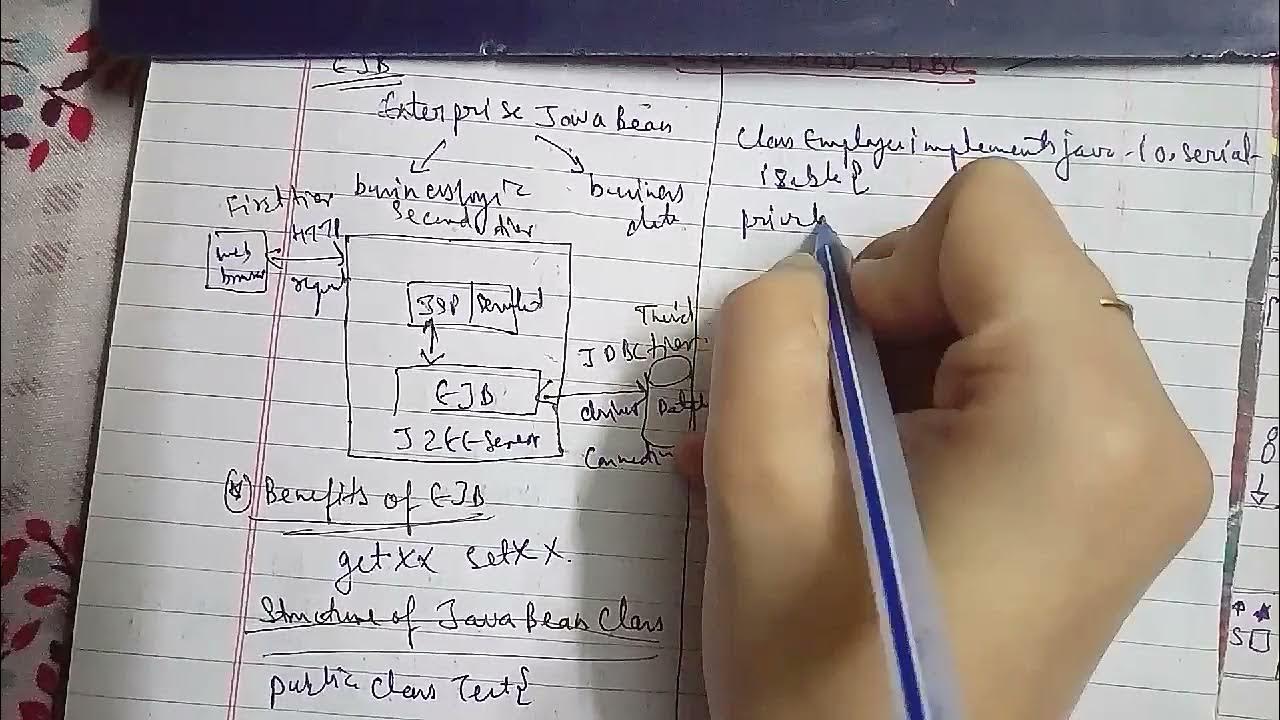 EJB
Enterprise Java Bean
business logic
business
data
First tier
Second tier
HTTP
web
browser
request
JSP Servlet
EJB
J2EE Server
Third
tier
JDBC
driver
Connection
Benefits of EJB
getXX setXX.
Structure of Java Bean Class
public class Test{
class Employee implements java.io.serial-
izable{
priv